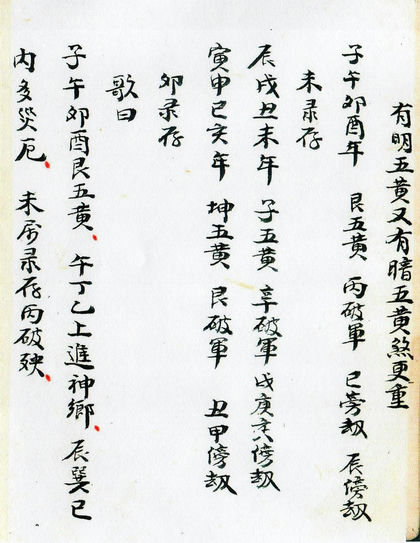 有明五黄又有暗五黄煞更重
子午卯酉年　艮五黄　丙破軍　巳傍劫　辰傍劫
未录存
辰戌丑未年　子五黄　辛破軍　戌庚亥傍劫
寅申巳亥年　坤五黄　艮破軍　丑甲傍劫
卯录存
歌曰
子午卯酉艮五黄、午丁乙上進神鄉、辰巽巳
内多災厄、未屬录存丙破殃、